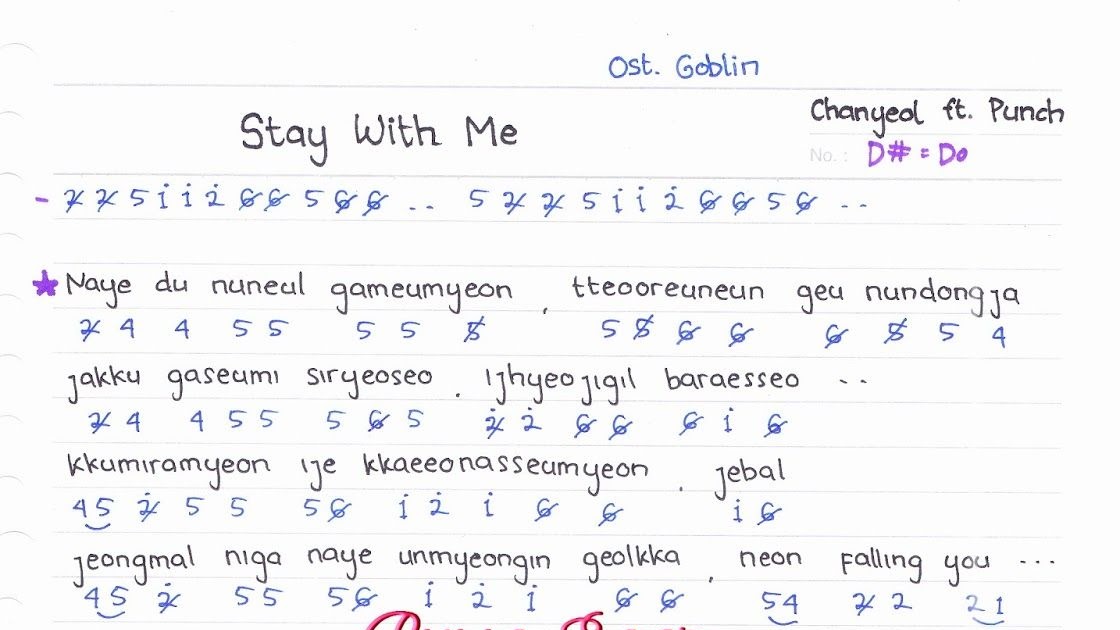 Ost. Goblin
Stay With Me
Chanyeol ft. Punch
No. : D# = Do
- 2̸ 2̸ 5 i̇ i̇ 2̇ 6̸ 6̸ 5 6̸ 6̸ .. 5 2̸ 2̸ 5 i̇ i̇ 2̇ 6̸ 6̸ 5 6̸ ..
★ Naye du nuneul gameumyeon , tteooreuneun geu nundongja
2̸ 4 4 5 5 5 5 5̸ 5 5̸ 6̸ 6̸ 6̸ 5̸ 5 4
jakku gaseumi siryeoseo . ijhyeojigil baraesseo ..
2̸ 4 4 5 5 5 6̸ 5 2̸̇ 2̇ 6̸ 6̸ 6̸ i̇ 6̸
kkumiramyeon ije kkaeeonasseumyeon . jebal
4 5 2̸̇ 5 5 5 6̸ i̇ 2̇ i̇ 6̸ 6̸ i̇ 6̸
jeongmal niga naye unmyeongin geolkka , neon falling you ...
4 5 2̸̇ 5 5 5 6̸ i̇ 2̇ i̇ 6̸ 6̸ 5 4 2̸ 2 2 1